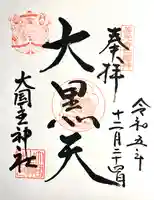 奉拝
大黒天
大国主神社
令和五年
十二月二十四日